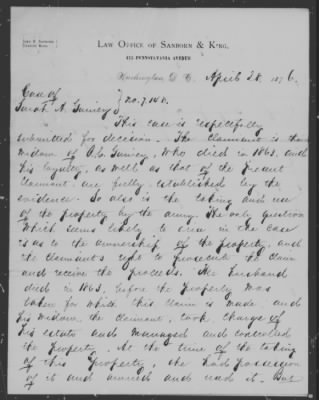 LAW OFFICE OF SANBORN & KING,
Washington D.C. April 28, 1876.
Case of
Sarah A.
No. 7.140.
This case is respectfully
submitted for decision. The claimant is the
widow of who died in 1863, and
his loyalty, as well as that of the present
claimant, are fully established by the
evidence. So also is the taking and use
of the property by the army. The only question
which seems likely to arise in the case
is as to the ownership of the property, and
the claimant's right to prosecute the claim
and receive the proceeds. The husband
died in 1863, before the property was
taken for which this claim is made, and
his widow, the claimant, took charge of
his estate and managed and controlled
the property. At the time of the taking
of this property, she had possession
of it and owned and used it. But